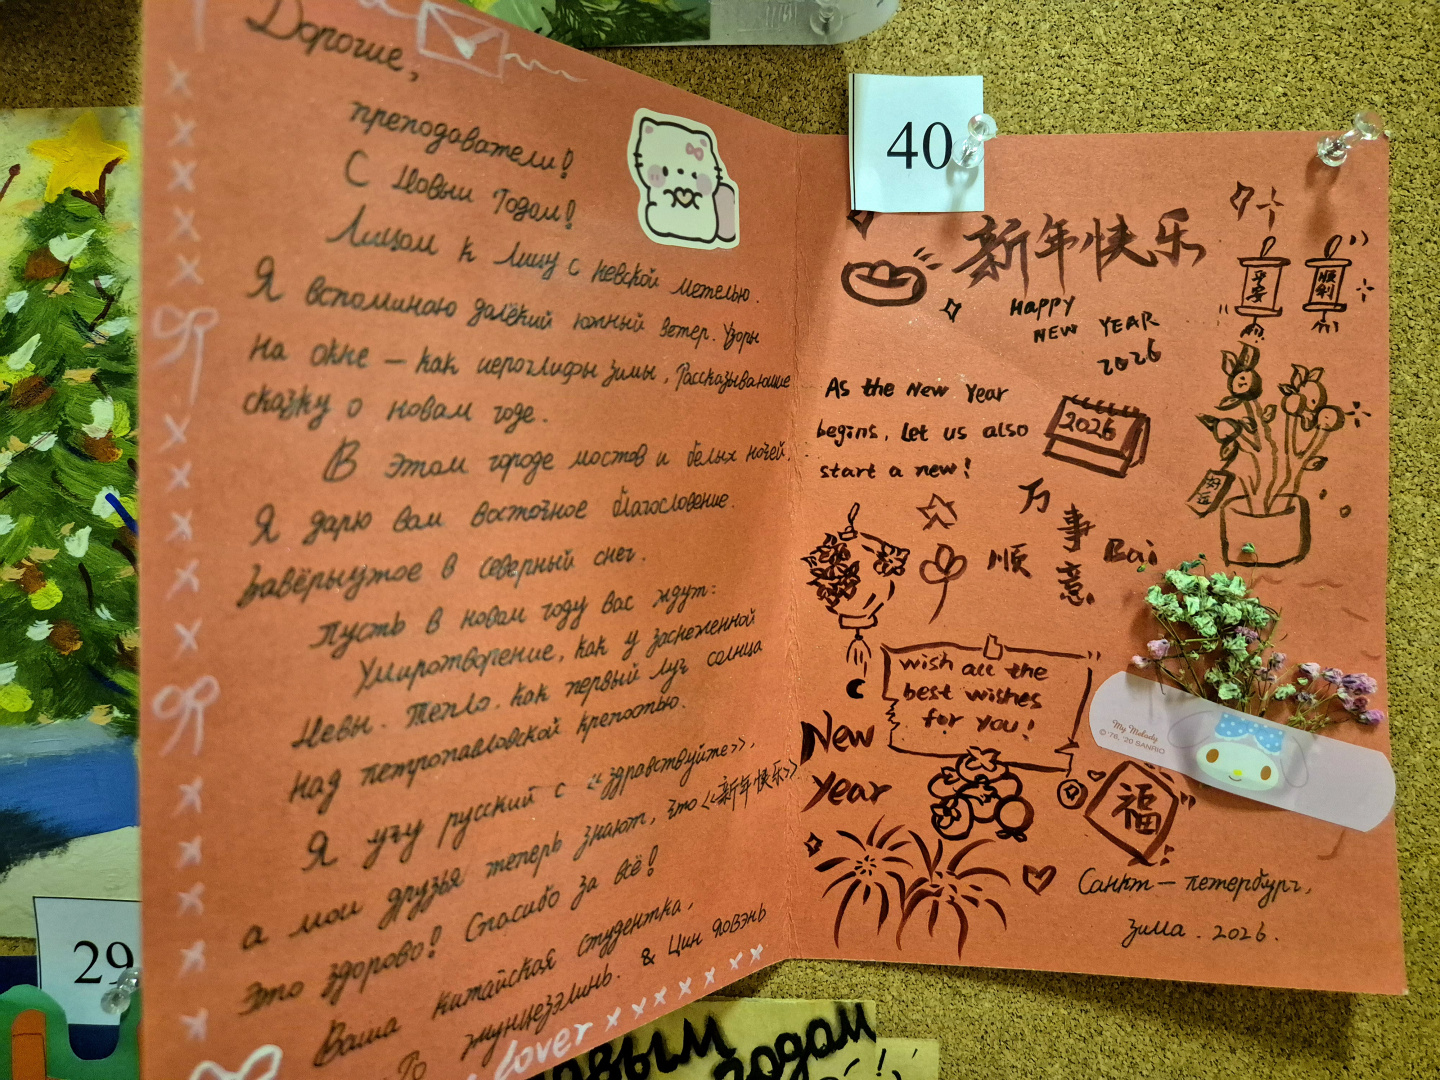 Дорогие,
преподаватели!
С Новым Годом!
Лицом к лицу с невской метелью.
Я вспоминаю далёкий южный ветер. Узоры
на окне — как иероглифы зимы, Рассказывающие
сказку о новом годе.
В этом городе мостов и белых ночей,
Я дарю вам восточное благословение.
Завёрнутое в северный снег.
Пусть в новом году вас ждут:
Умиротворение, как у заснеженной
Невы. Тепло. Как первый луч солнца
над петропавловской крепостью.
Я учу русский с «здравствуйте»,
а мои друзья теперь знают, что «新年快乐».
Это здорово! Спасибо за всё!
Ваша китайская студентка,
Го жунцезэлинь. & Цин Яовэнь
lover
40
新年快乐
HAPPY
NEW YEAR
2026
平安
顺利
As the New Year
begins, let us also
start a new!
2026
万
事
顺
意
Bai
wish all the
best wishes
for you!
New
Year
My Melody
© '76, '20 SANRIO
福
Санкт-петербург,
зима. 2026.
29
овым
годом